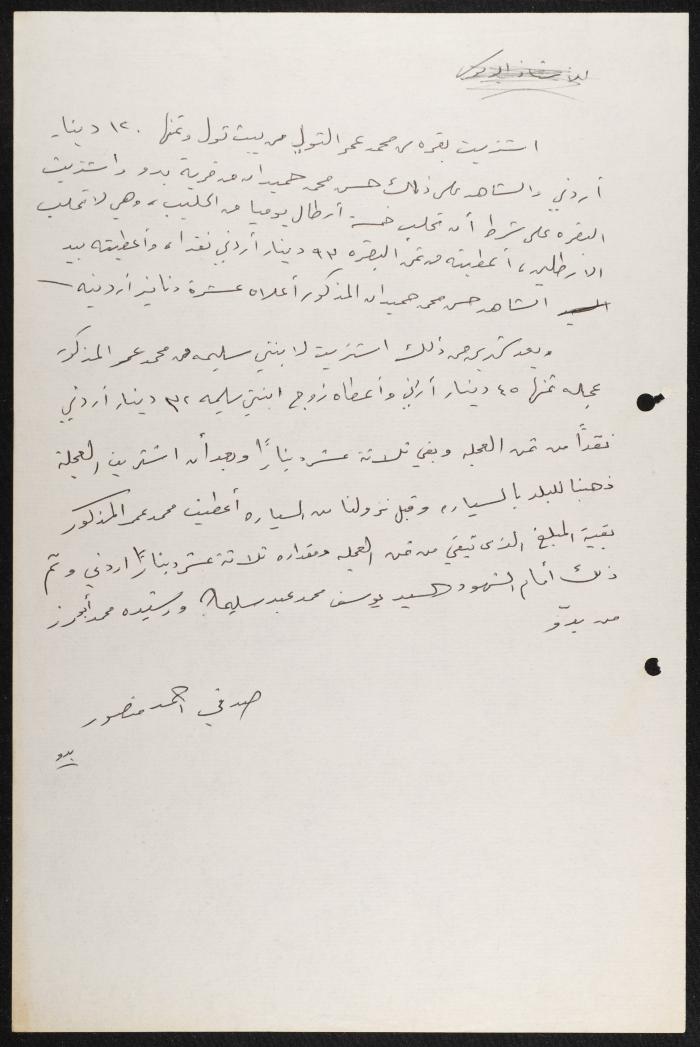 اشتريت بقره من محمد عمر التولي من بيت تول وثمنها ١٢٠ دينار
أردني والشاهد على ذلك حسن محمد حميدان من قرية بدو واشتريت
البقره على شرط أن تحلب خمسة أرطال يوميا من الحليب، وهي لا تحلب
الا رطلين، أعطيته من ثمن البقره ٩٣ دينار أردني نقدا، وأعطيته بيد
الشاهد حسن محمد حميدان المذكور أعلاه عشرة دنانير أردنيه
وبعد شهرين من ذلك اشتريت لابنتي سليمه من محمد عمر المذكور
عجله ثمنها ٤٥ دينار أردني وأعطاه زوج ابنتي سليمه ٣٢ دينار أردني
نقداً من ثمن العجله وبقي ثلاثة عشر ديناراً وبعد أن اشترينا العجلة
ذهبنا للبلد بالسياره وقبل نزولنا من السياره أعطيت محمد عمر المذكور
بقية المبلغ الذي تبقى من ثمن العجله ومقداره ثلاثة عشر ديناراً اردني وتم
ذلك أمام الشهود السيد يوسف محمد عبد سليمان ورشيده محمد
من بدّو
صدقي احمد منصور
بدو